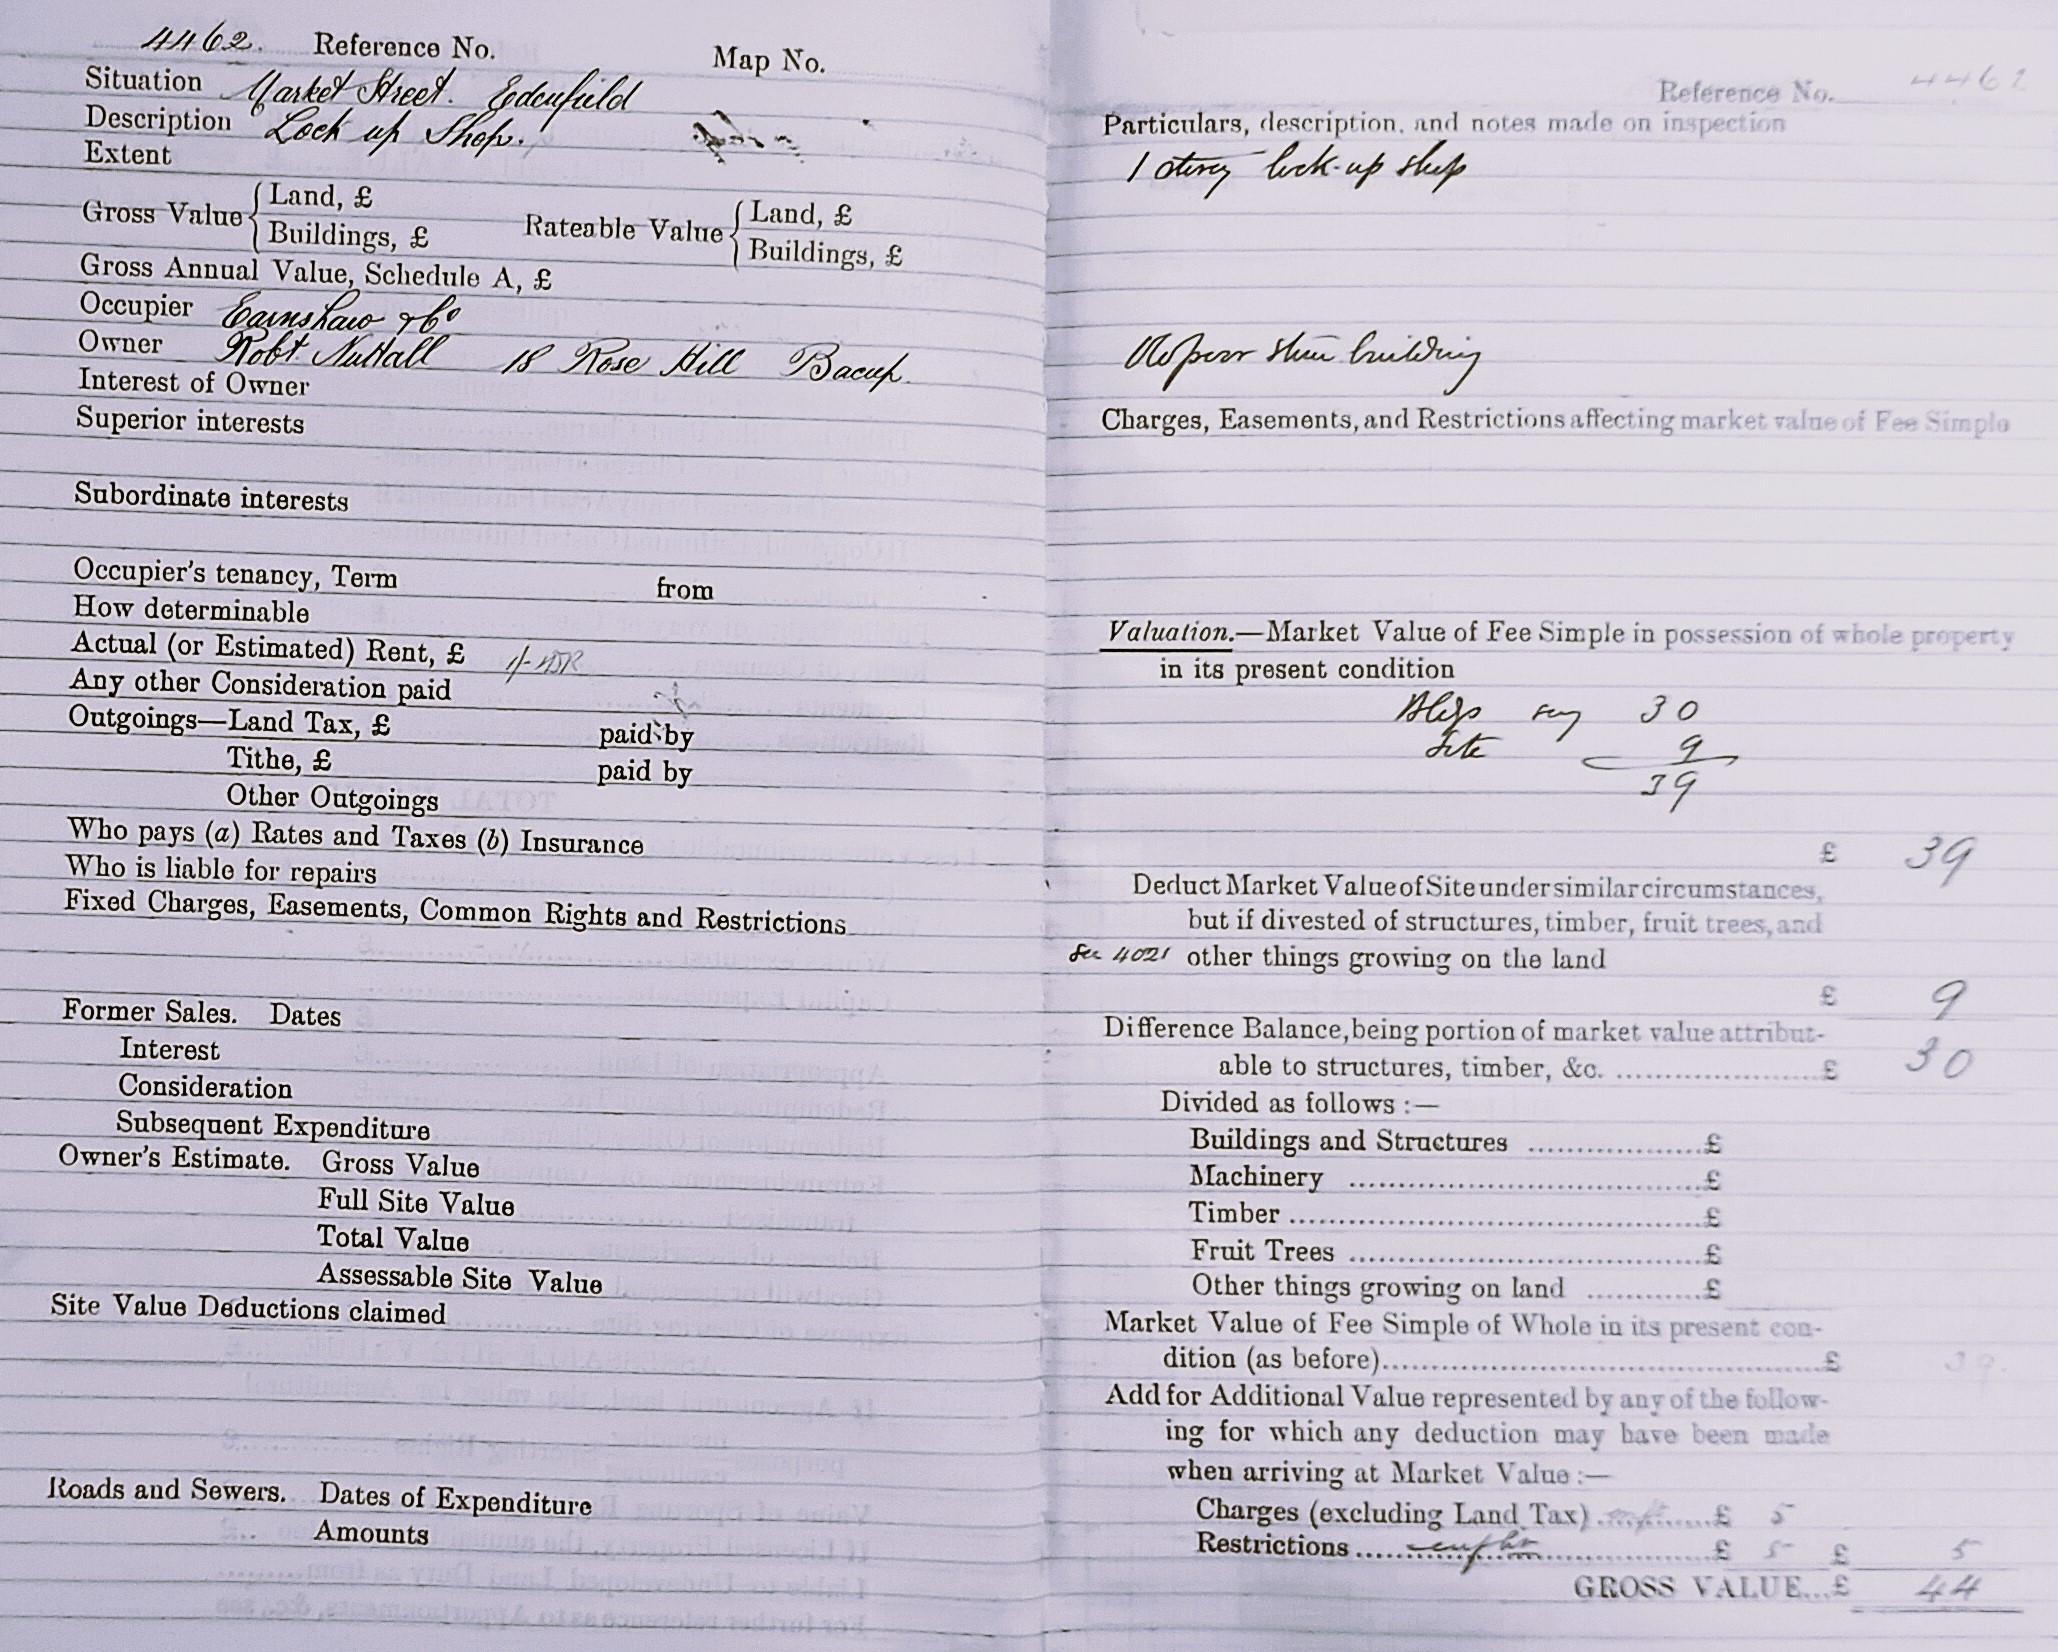 4462. Reference No. Map No.
Situation Market Street. Edenfield
Description Lock up Shop.
Extent
Gross Value { Land, £
Buildings, £
Rateable Value { Land, £
Buildings, £
Gross Annual Value, Schedule A, £
Occupier Earnshaw & Co
Owner Robt. Nuttall 18 Rose Hill Bacup.
Interest of Owner
Superior interests
Subordinate interests
Occupier's tenancy, Term from
How determinable
Actual (or Estimated) Rent, £ 1/-
Any other Consideration paid
Outgoings—Land Tax, £ paid by
Tithe, £ paid by
Other Outgoings
Who pays (a) Rates and Taxes (b) Insurance
Who is liable for repairs
Fixed Charges, Easements, Common Rights and Restrictions
Former Sales. Dates
Interest
Consideration
Subsequent Expenditure
Owner's Estimate. Gross Value
Full Site Value
Total Value
Assessable Site Value
Site Value Deductions claimed
Roads and Sewers. Dates of Expenditure
Amounts
Reference No. 4462
Particulars, description, and notes made on inspection
1 storey lock-up shop
Old poor stone building
Charges, Easements, and Restrictions affecting market value of Fee Simple
Valuation.—Market Value of Fee Simple in possession of whole property
in its present condition
Bldgs say 30
Site 9
39
£ 39
Deduct Market Value of Site under similar circumstances,
but if divested of structures, timber, fruit trees, and
See 4021 other things growing on the land
£ 9
Difference Balance, being portion of market value attribut-
able to structures, timber, &c. .................... £ 30
Divided as follows :—
Buildings and Structures .................. £
Machinery .................................. £
Timber ........................................ £
Fruit Trees .................................. £
Other things growing on land ............ £
Market Value of Fee Simple of Whole in its present con-
dition (as before).................................................. £ 39.
Add for Additional Value represented by any of the follow-
ing for which any deduction may have been made
when arriving at Market Value :—
Charges (excluding Land Tax) ............ £ 5
Restrictions ............ £ 5 £ 5
GROSS VALUE... £ 44